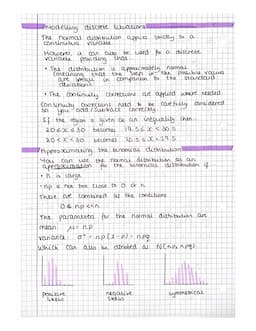 Modelling discrete situations
The normal distribution applies strictly to a
continuous variable
However, it can also be used for a discrete
variable providing that
• The distribution is approximately normal
(meaning that the steps in the possible values
are small in comparison to the standard
deviation)
• The continuity corrections are applied where needed
Continuity corrections need to be carefully considered
so you add/subtract correctly
If the region is given as an inequality then
20 ≤ X ≤ 30 becomes 19.5 ≤ X < 30.5
20 < X < 30 becomes 20.5 ≤ X < 29.5
Approximating the binomial distribution
You can use the normal distribution as an
approximation for the binomial distribution if
• n is large
• np is not too close to 0 or n
These are contained as the conditions
0 << np << n
The parameters for the normal distribution are
mean μ = np
variance σ² = np(1-p) = npq
Which can also be denoted as N(np, npq)
positive negative symmetrical
skew skew